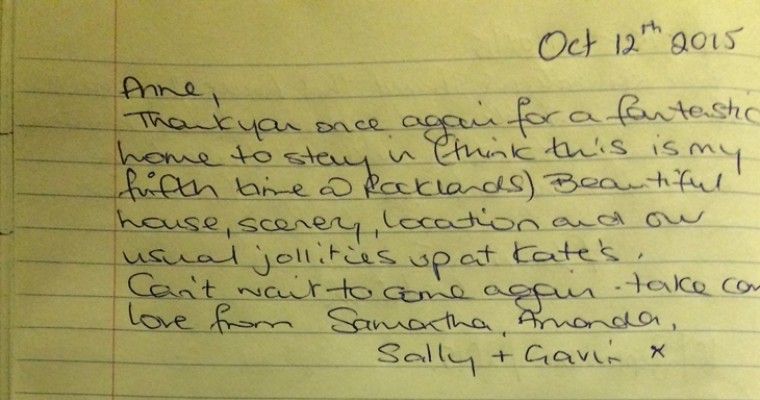 Oct 12th 2015
Anne,
Thankyou once again for a fantastic
home to stay in (think this is my
fifth time @ Rocklands) Beautiful
house, scenery, location and our
usual jollities up at Kate's.
Can't wait to come again - take
love from Samantha, Amanda,
Sally + Gavin x